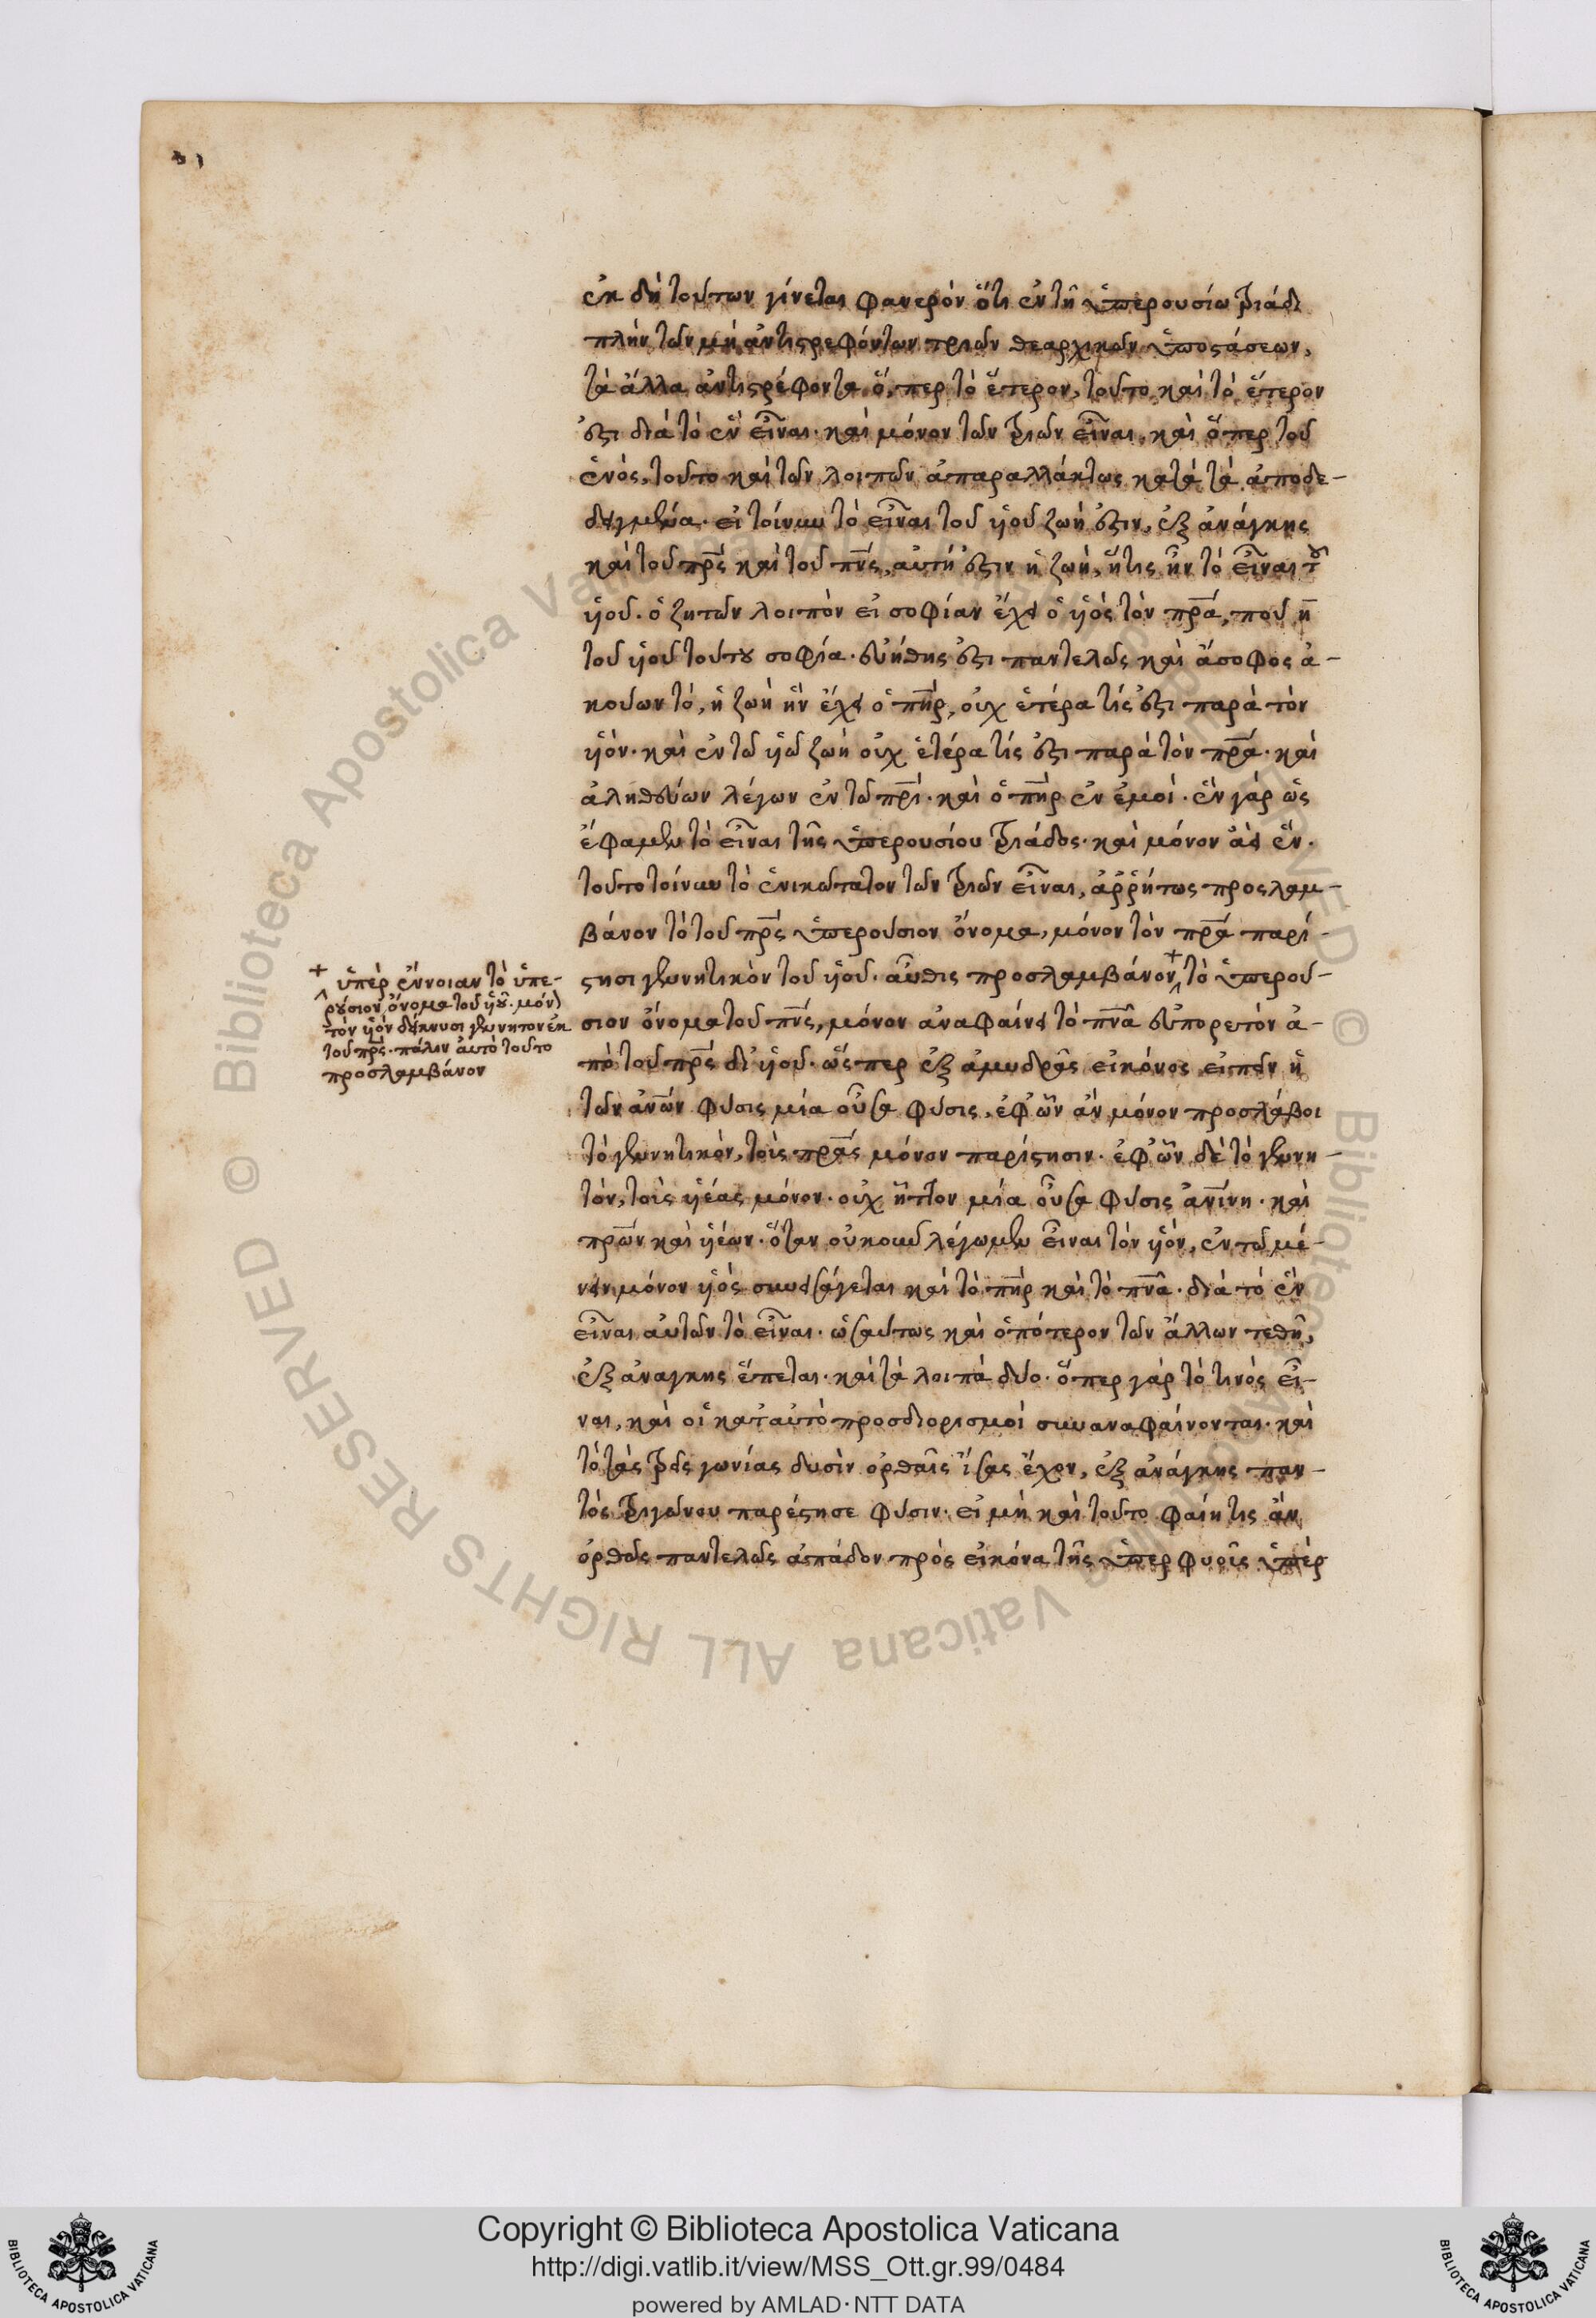 ἐκ δὴ τούτων γίνεται φανερὸν ὅτι ἐν τῇ ὑπερουσίω τριάδι
πλὴν τῶν μὴ ἀντιστρεφόντων τριῶν θεαρχικῶν ὑποστάσεων,
τὰ ἄλλα ἀντιστρέφοντα ὅ,περ τὸ ἕτερον, τοῦτο καὶ τὸ ἕτερον
ἐστι διὰ τὸ ἓν εἶναι· καὶ μόνον τῶν τριῶν εἶναι, καὶ ὅπερ τοῦ
ἑνὸς, τοῦτο καὶ τῶν λοιπῶν ἀπαραλλάκτως κατὰ τὰ ἀποδε-
δειγμένα· εἰ τοίνυν τὸ εἶναι τοῦ υἱοῦ ζωή ἐστιν, ἐξ ἀνάγκης
καὶ τοῦ πρς καὶ τοῦ πνς, αὐτή ἐστιν ἡ ζωὴ, ἥτις ἦν τὸ εἶναι τοῦ
υἱοῦ· ὁ ζητῶν λοιπὸν εἰ σοφίαν ἔχει ὁ υἱὸς τὸν πρα, ποῦ
τοῦ υἱοῦ τούτου σοφία· εὐήθης ἐστι παντελῶς καὶ ἄσοφος ἀ-
κούων τὸ, ἡ ζωὴ ἣν ἔχει ὁ πηρ, οὐχ ἑτέρα τίς ἐστι παρὰ τὸν
υἱόν· καὶ ἐν τῶ υἱῶ ζωὴ οὐχ ἑτέρα τίς ἐστι παρὰ τὸν πρα· καὶ
ἀληθεύων λέγων ἐν τῶ πρι· καὶ ὁ πηρ ἐν ἐμοί· ἓν γὰρ ὡς
ἔφαμεν τὸ εἶναι τῆς ὑπερουσίου τριάδος· καὶ μόνον ἀεὶ ἕν·
τοῦτο τοίνυν τὸ ἑνικώτατον τῶν τριῶν εἶναι, ἀῤῥήτως προσλαμ-
βάνον τὸ τοῦ πρς ὑπερούσιον ὄνομα, μόνον τὸν πρα παρί-
στησι γεννητικὸν τοῦ υἱοῦ. αὖθις προσλαμβάνον + τὸ ὑπερού-
σιον ὄνομα τοῦ πνς, μόνον ἀναφαίνει τὸ πνα ἐκπορευτὸν ἀ-
πὸ τοῦ πρς δι' υἱοῦ· ὥσπερ ἐξ ἀμυδρᾶς εἰκόνος εἰπεῖν ἡ
τῶν ανων φύσις μία οὖσα φύσις, ἐφ' ὧν ἂν μόνον προσλάβοι
τὸ γεννητικὸν, τοὺς πρας μόνον παρίστησιν· ἐφ' ὧν δὲ τὸ γεννη-
τὸν, τοὺς υἱέας μόνον· οὐχ ἧττον μία οὖσα φύσις ανινη· καὶ
πρων καὶ υἱέων· ὅταν οὐκοῦν λέγωμεν εἶναι τὸν υἱὸν, ἐν τῶ μέ-
νειν μόνον υἱὸς συνεισάγεται καὶ τὸ πηρ καὶ τὸ πνα· διὰ τό ἓν
εἶναι αὐτῶν τὸ εἶναι· ὡσαύτως καὶ ὁπότερον τῶν ἄλλων τεθῆ,
ἐξ ἀναγκης ἕπεται· καὶ τὰ λοιπὰ δύο· ὅπερ γὰρ τὸ τινὸς εἶ-
ναι, καὶ οἱ κατ' αὐτὸ προσδιορισμοὶ συναναφαίνονται· καὶ
τὸ τὰς τρεῖς γωνίας δυσὶν ὀρθαῖς ἴσας ἔχον, ἐξ ἀνάγκης παν-
τὸς τριγώνου παρέστησε φύσιν· εἰ μὴ καὶ τοῦτο φαίη τις ἂν
ὀρθῶς παντελῶς ἀπάδον πρὸς εἰκόνα τῆς ὑπερφυοῦς ὑπὲρ
+ ὑπὲρ ἔννοιαν τὸ ὑπε-
ρούσιον ὄνομα τοῦ υἱοῦ· μόν
τὸν υἱὸν δείκνυσι γεννητον ἐκ
τοῦ πρς· πάλιν αὐτὸ τοῦτο
προσλαμβάνον
Copyright © Biblioteca Apostolica Vaticana
http://digi.vatlib.it/view/MSS_Ott.gr.99/0484
powered by AMLAD·NTT DATA
BIBLIOTECA APOSTOLICA VATICANA
BIBLIOTECA APOSTOLICA VATICANA
© Biblioteca Apostolica Vaticana ALL RIGHTS RESERVED